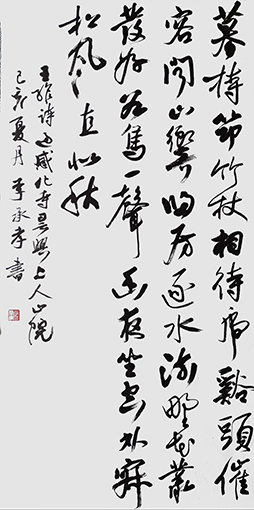 暮持筇竹杖相待虎谿頭催
客聞山響歸房逐水流野花叢
發好谷鳥一聲幽夜坐空林寂
松風直似秋
王維詩過感化寺曇興上人山院
己亥夏月李承孝書